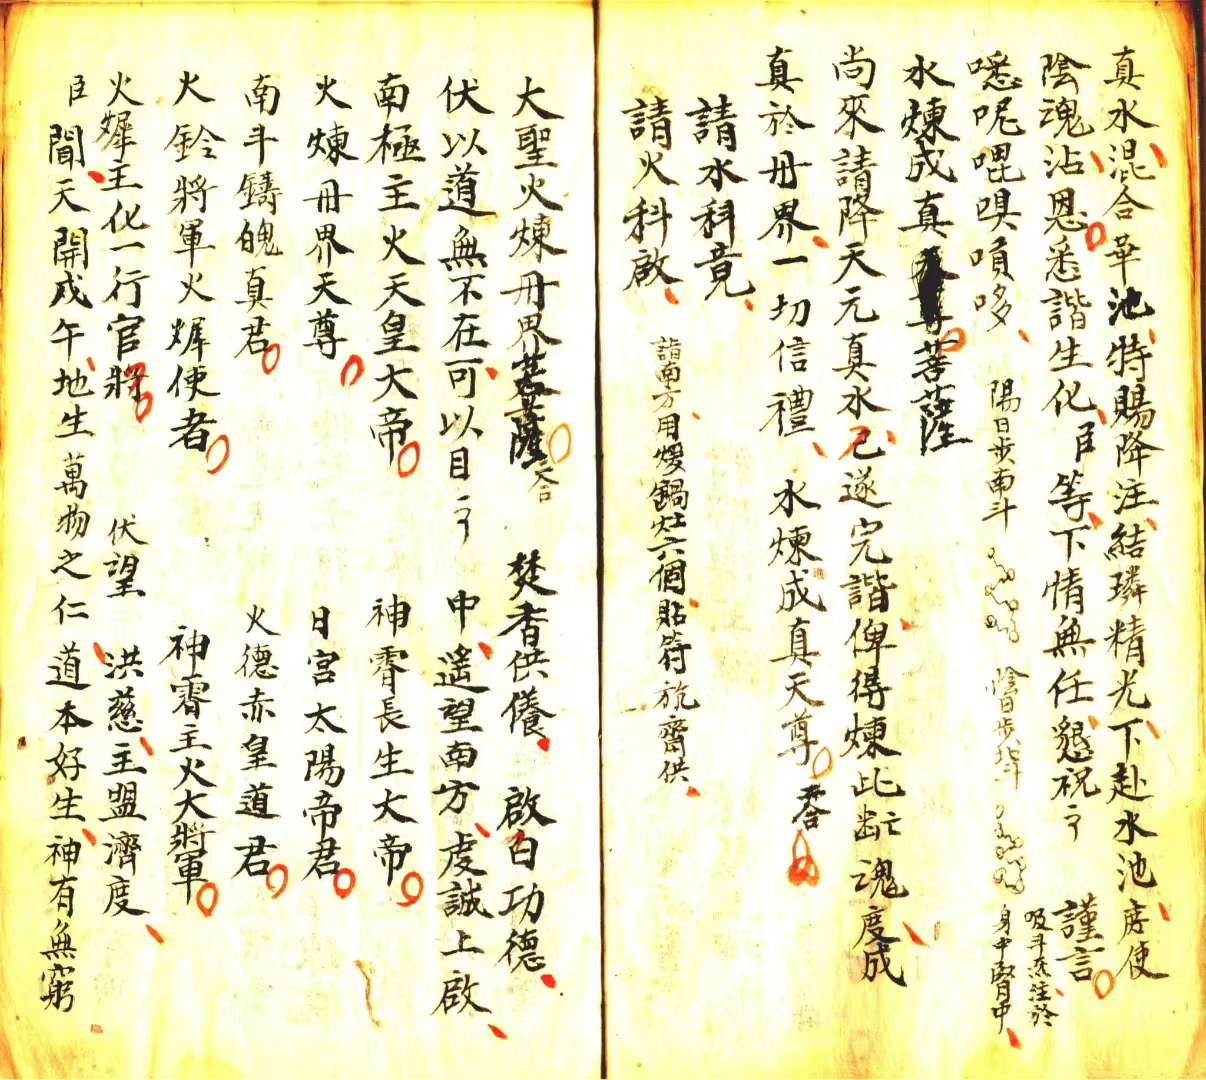 真水混合華池特賜降注結璘精光下赴水池庶使
陰魂沾恩悉諧生化臣等下情無任懇祝之 謹言
噁呢嚜嗅嗊哆 陽日步南斗 陰日步北斗 吸斗炁注於
身中腎中
水煉成真菩薩
尚來請降天元真水已遂完諧俾得煉此亡魂度成
真於丹界一切信禮 水煉成真天尊 不合
請水科竟
請火科啟 詣南方用煖鍋灶六個貼符於齋供
大聖火煉丹界 大合 焚香供儀 啟白功德
伏以道無不在可以目之 申遙望南方虔誠上啟
南極主火天皇大帝 神霄長生大帝
火煉丹界天尊 日宮太陽帝君
南斗鑄魄真君 火德赤皇道君
火鈴將軍火犀使者 神霄主火大將軍
火犀王化一行官將 伏望 洪慈主盟濟度
臣聞天開戍午地生萬物之仁道本好生神有無窮